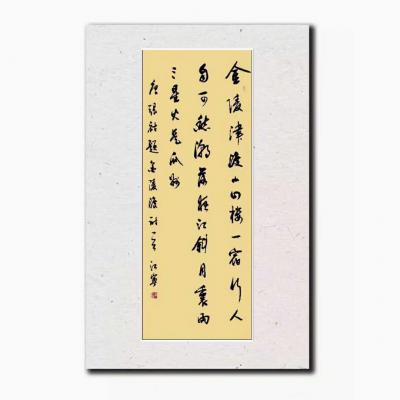 金陵津渡小山樓一宿行人
自可愁潮落夜江斜月裏兩
三星火是瓜洲
唐張祜題金陵渡詩一首 江寧